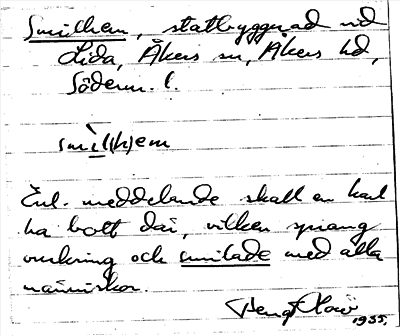 Smilhem, statbyggnad vid
Lida, Åkers sn, Åkers hd,
Söderm. l.
smil(h)em
Enl. meddelande skall en karl
ha bott där, vilken sprang
omkring och smilade med alla
människor.
Bengt
1935.